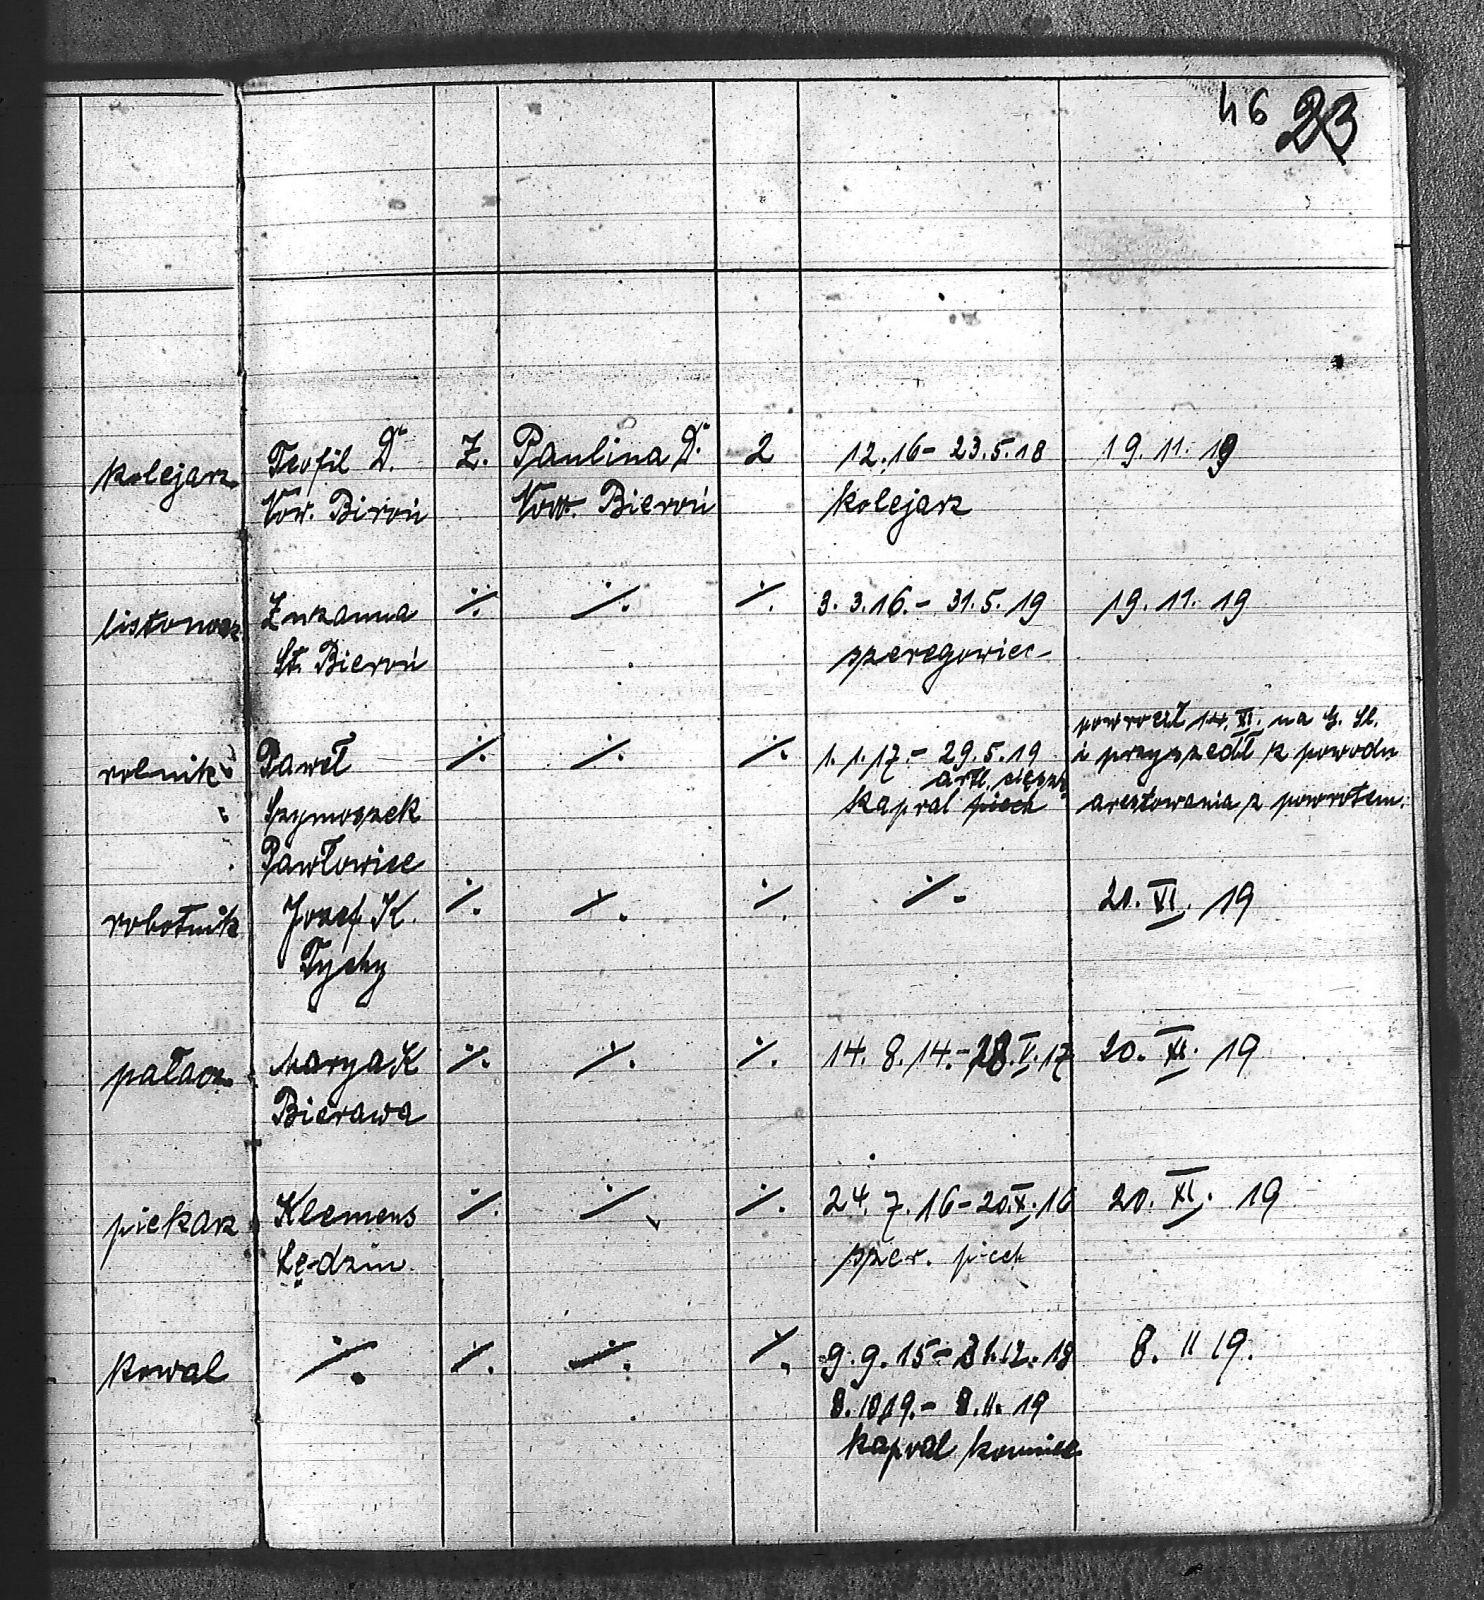 46 23
kolejarz Teofil D. Ż. Paulina D. 2 12.16 - 23.5.18 19.11.19
Now. Biroń Now. Bieroń kolejarz
listonosz Zuzanna ⁒ ⁒ ⁒ 3.3.16. - 31.5.19 19.11.19
St. Bieroń szeregowiec
powrocił 14.XI. na G. Śl.
rolnik Paweł ⁒ ⁒ ⁒ 1.1.17. - 29.5.19 i przyszedł z powodu
art. ciężk.
Szymoszek kapral piech aresztowania z powrotem.
Pawłowice
robotnik Jozef K. ⁒ ⁒ ⁒ ⁒ 21. VI. 19
Tychy
palacz Marya K ⁒ ⁒ ⁒ 14.8.14. - 28.V.17 20. XI. 19
Bierawa
piekarz Klemens ⁒ ⁒ ⁒ 24.7.16 - 20.X.16 20. XI. 19
Lędzin szer. piech
kowal ⁒ ⁒ ⁒ ⁒ 9.9.15 - 31.12.18 8. 11 19.
8.10.19. - 8.11.19
kapral